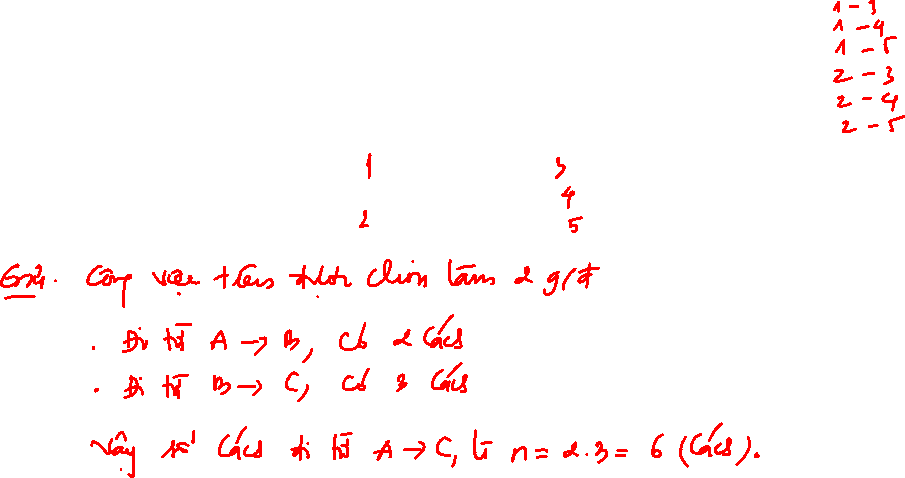 1 - 3
1 - 4
1 - 5
2 - 3
2 - 4
2 - 5
1 3
4
2 5
Giải. Công việc trên được chia làm 2 g/đ
. Đi từ A → B, có 2 cách
. Đi từ B → C, có 3 cách
Vậy số cách đi từ A → C, là n = 2.3 = 6 (cách).